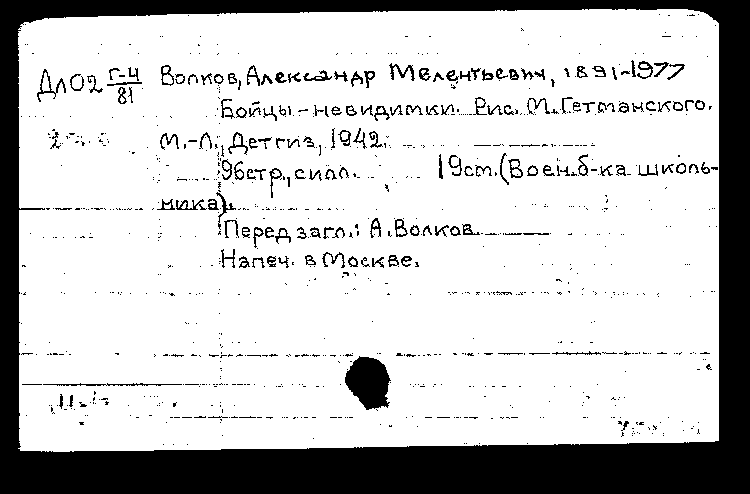 ДлО2 Г-4/81 Волков, Александр Мелентьевич, 1891-1977
Бойцы-невидимки. Рис. М. Гетманского.
М.-Л., Детгиз, 1942.
96стр., с илл. 19см. (Воен. б-ка школь-
ника).
Перед загл.: А. Волков.
Напеч. в Москве.